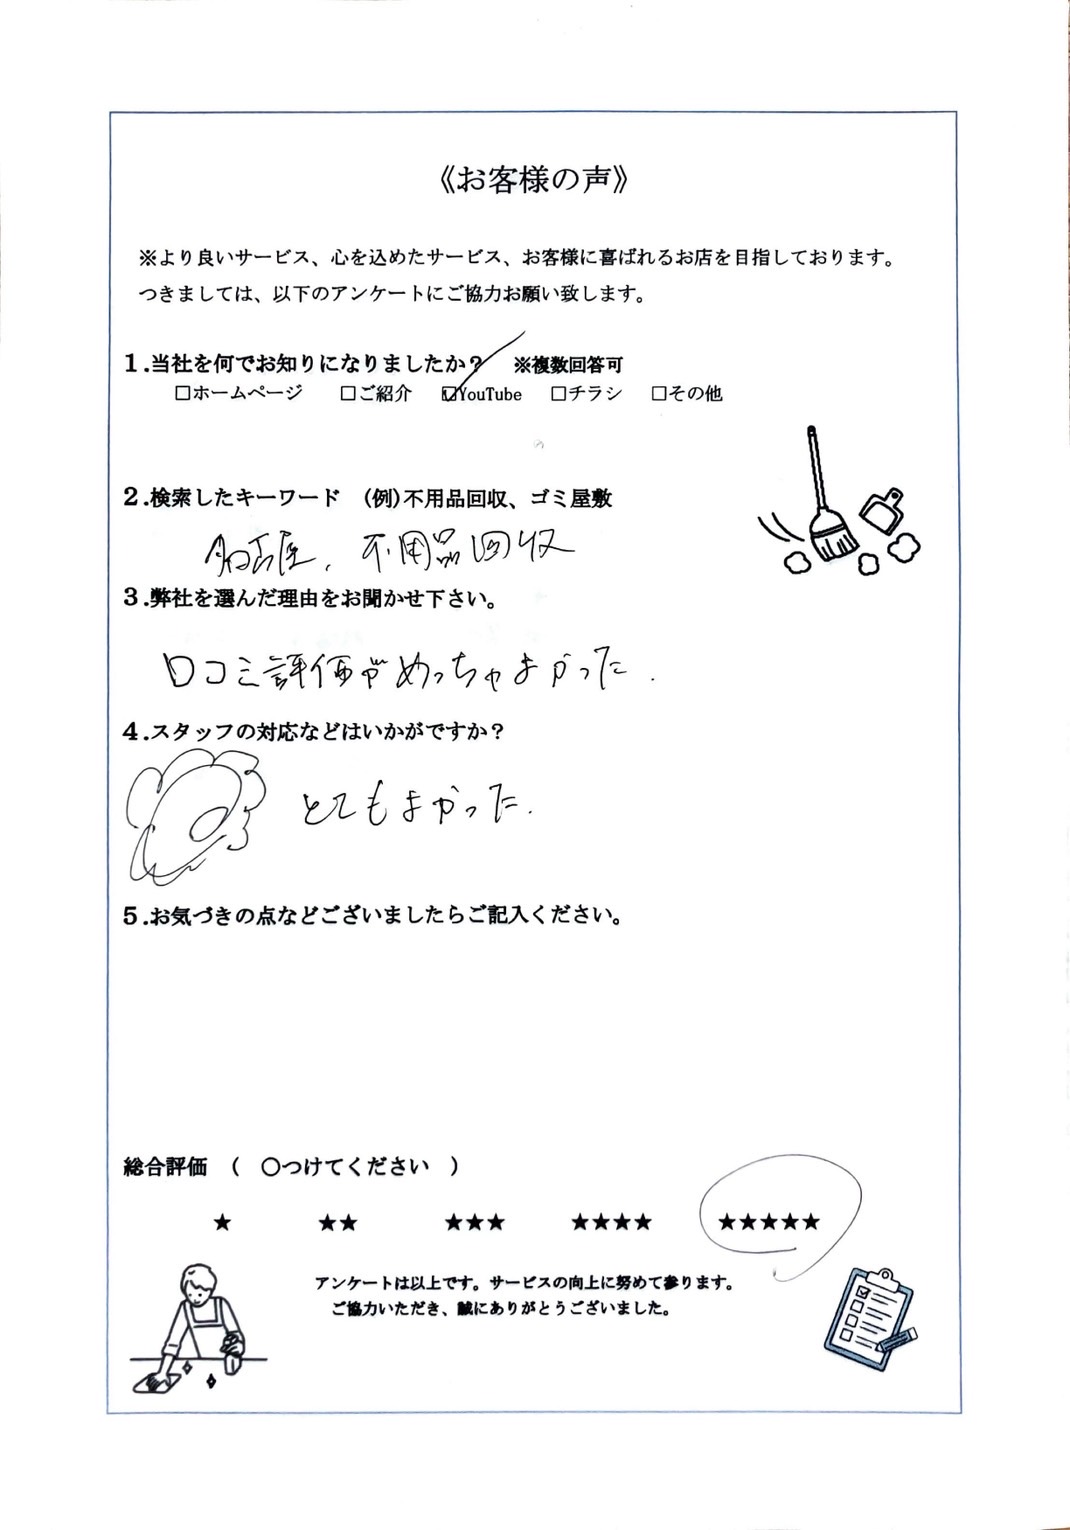 《お客様の声》
※より良いサービス、心を込めたサービス、お客様に喜ばれるお店を目指しております。
つきましては、以下のアンケートにご協力お願い致します。
1.当社を何でお知りになりましたか？ ※複数回答可
□ホームページ □ご紹介 ☑YouTube □チラシ □その他
2.検索したキーワード (例)不用品回収、ゴミ屋敷
名古屋、不用品回収
3.弊社を選んだ理由をお聞かせ下さい。
口コミ評価がめっちゃよかった.
4.スタッフの対応などはいかがですか？
とてもよかった.
5.お気づきの点などございましたらご記入ください。
総合評価 ( ○つけてください )
★ ★★ ★★★ ★★★★ ★★★★★
アンケートは以上です。サービスの向上に努めて参ります。
ご協力いただき、誠にありがとうございました。